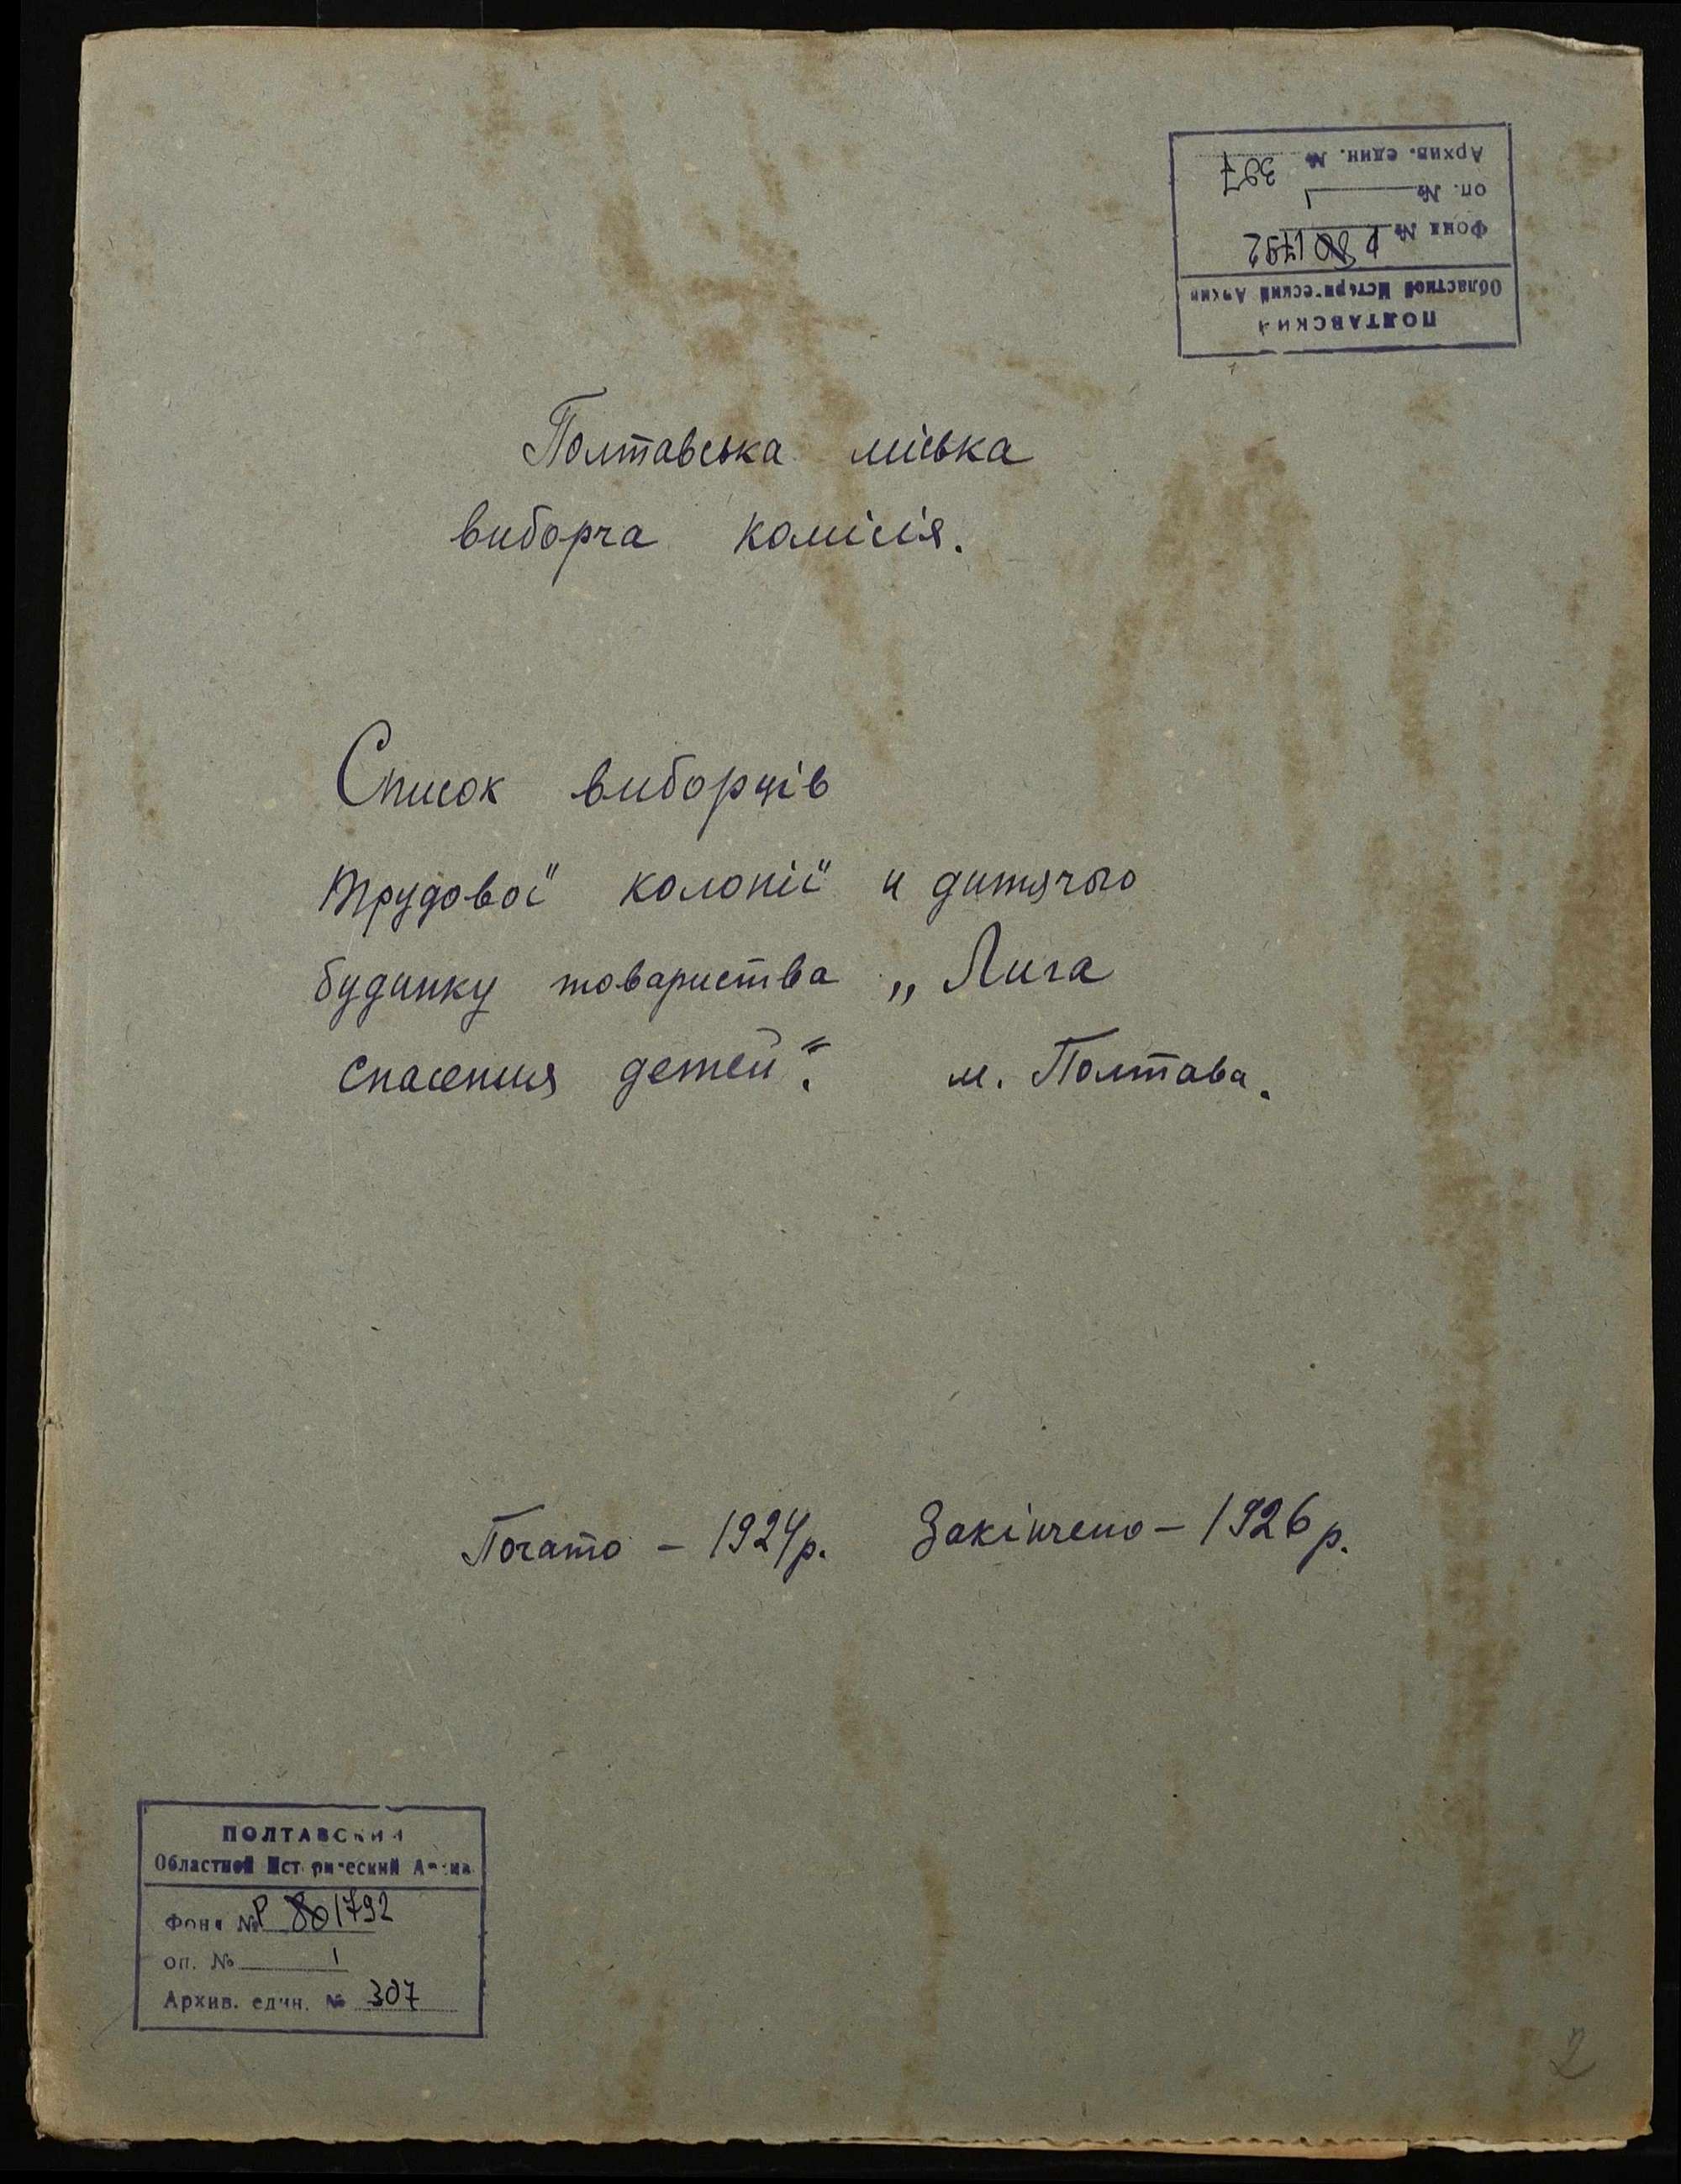 ПОЛТАВСКИЙ
Областной Исторический Архив
Фонд № Р 80 1792
оп. № 1
Архив. един. № 307
Полтавська міська
виборча комісія.
Список виборців
трудової колонії и дитячого
будинку товариства „Лига
спасения детей“. м. Полтава.
Почато - 1924р. Закінчено - 1926р.
ПОЛТАВСКИЙ
Областной Исторический Архив
Фонд № Р 80 1792
оп. № 1
Архив. един. № 307
2